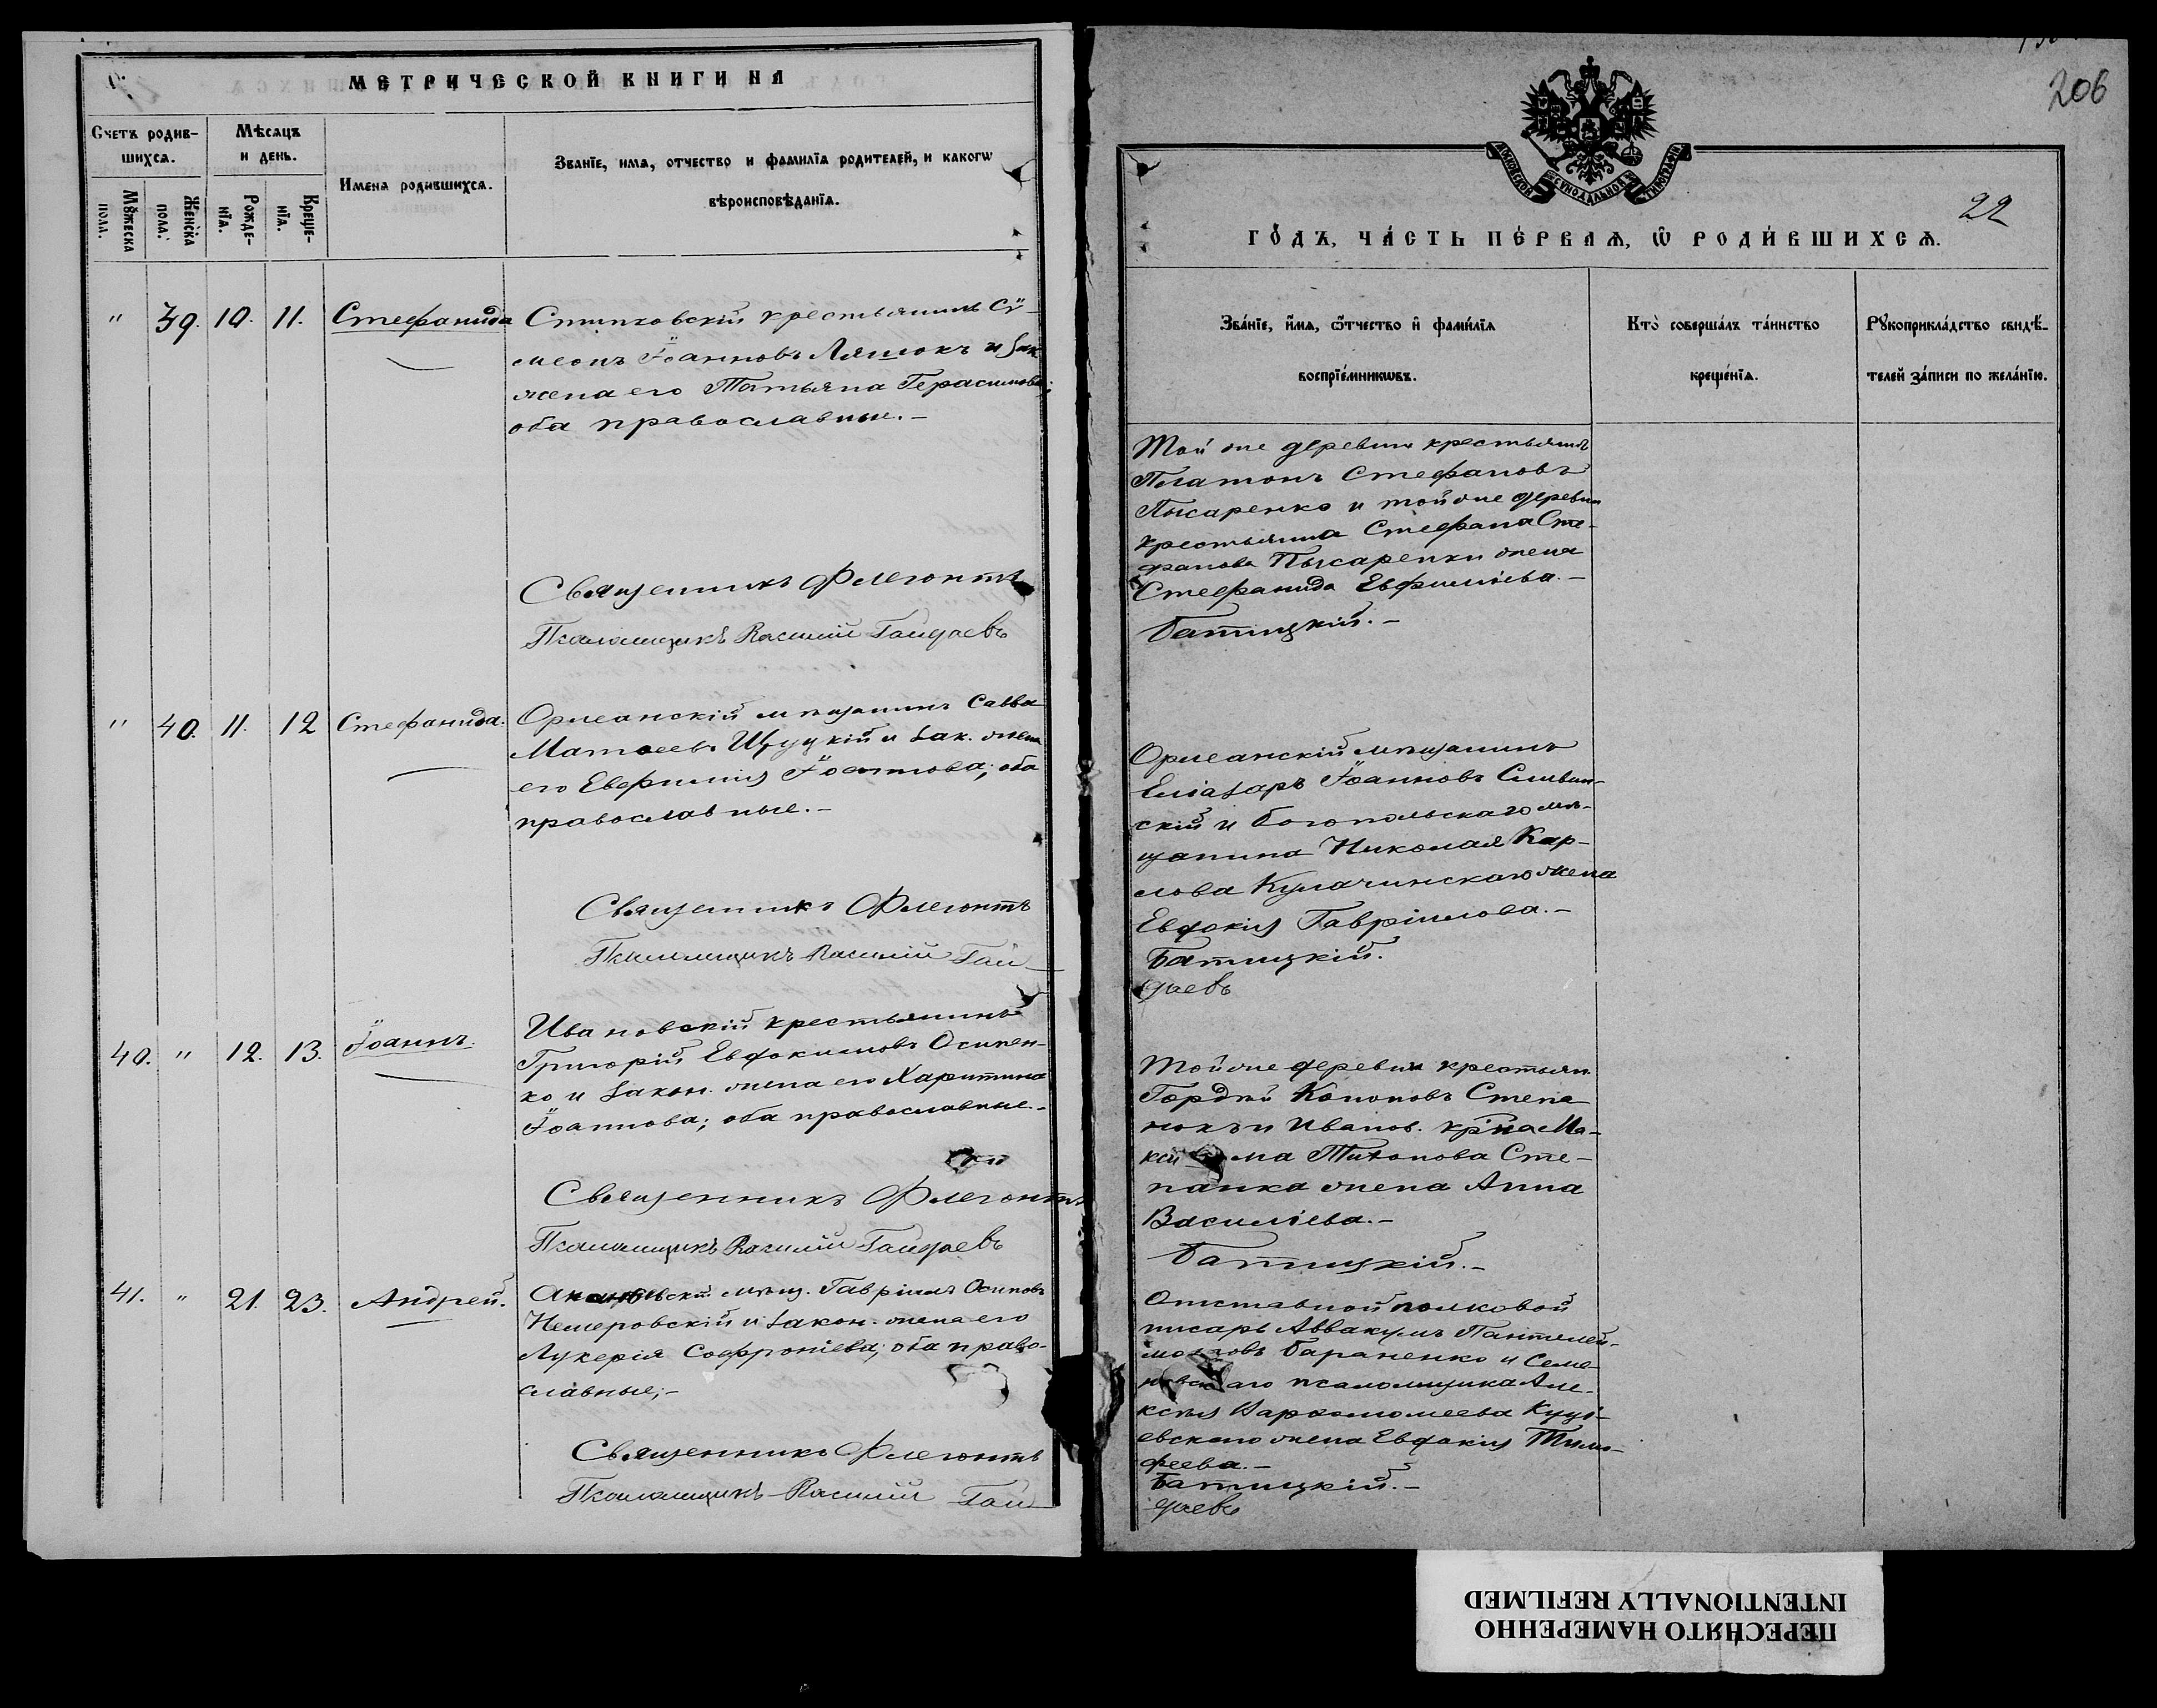 МЕТРИЧЕСКОЙ КНИГИ НА
Счетъ родив-
шихся.
Мѣсяцъ
и день.
Имена родившихся.
Званїе, имя, отчество и фамилїя родителей, и какогѡ
вѣроисповѣданїя.
Мꙋжеска
пола.
Женска
пола.
Рожде-
нїя.
Креще-
нїя.
" 39. 10. 11. Стефанида
крестьянинъ Сѵ-
меонъ Іоанновъ Ляшокъ и зак.
жена его Татьяна Герасимова;
оба православные.-
Священникъ Флегонтъ
Псаломщикъ Василій Гайдаевъ
" 40. 11. 12 Стефанида.
Орлеанскій мѣщанинъ Савва
Матѳеевъ Щуцкій и зак. жена
его Евфимія Іоаннова; оба
православные.-
Священникъ Флегонтъ
Псаломщикъ Василій Гай-
40. " 12. 13. Іоаннъ.
Ивановскій крестьянинъ
Григорій Евдокимовъ Осипен-
ко и закон. жена его Харитина
Іоаннова; оба православные.-
Священникъ Флегонтъ
Псаломщикъ Василій Гайдаевъ
41. " 21. 23. Андрей.
мѣщ. Гавріилъ Осиповъ
Немеровскій и закон. жена его
Лукерія Софроніева; оба право-
славные;-
Священникъ Флегонтъ
Псаломщикъ Василій Гай-
206
МОСКОВСКОЙ СѴНОДАЛЬНОЙ ТИПОГРАФІИ
22
ГО́ДЪ, ЧА́СТЬ ПЕ́РВАѦ, Ѡ҆ РОДИ́ВШИХСѦ.
Зва́нїе, и҆́мѧ, ѻ҆́тчество и҆ фами́лїѧ
воспрїе́мникѡвъ.
Кто̀ соверша́лъ та́инство
креще́нїѧ.
Рꙋкоприкла́дство свидѣ́-
телей за́писи по жела́нїю.
Той же деревни крестьянинъ
Платонъ Стефановъ
Писаренко и той же деревни
крестьянина Стефана Сте-
фанова Писаренки жена
Стефанида Евфиміева.-
Батицкій.-
Орлеанскій мѣщанинъ
Еліазаръ Іоанновъ Сливин-
скій и богопольскаго мѣ-
щанина Николая Кар-
лова Кулачинскаго жена
Евдокія Гавріилова.-
Батицкій.
даевъ
Той же деревни крестьян.
Гордѣй Кононовъ Степа
нокъ и Иванов. кр-на Ма-
ма Тихонова Сте-
панка жена Анна
Василіева.-
Батицкій.-
Отставной полковой
писарь Аввакумъ Пантелей-
моновъ Бараненко и Семе-
псаломщика Але-
ксѣя Варѳоломеева Куці-
евскаго жена Евдокія Тимо-
феева.-
Батицкій.-
даевъ
ПЕРЕСНЯТО НАМЕРЕННО
INTENTIONALLY REFILMED